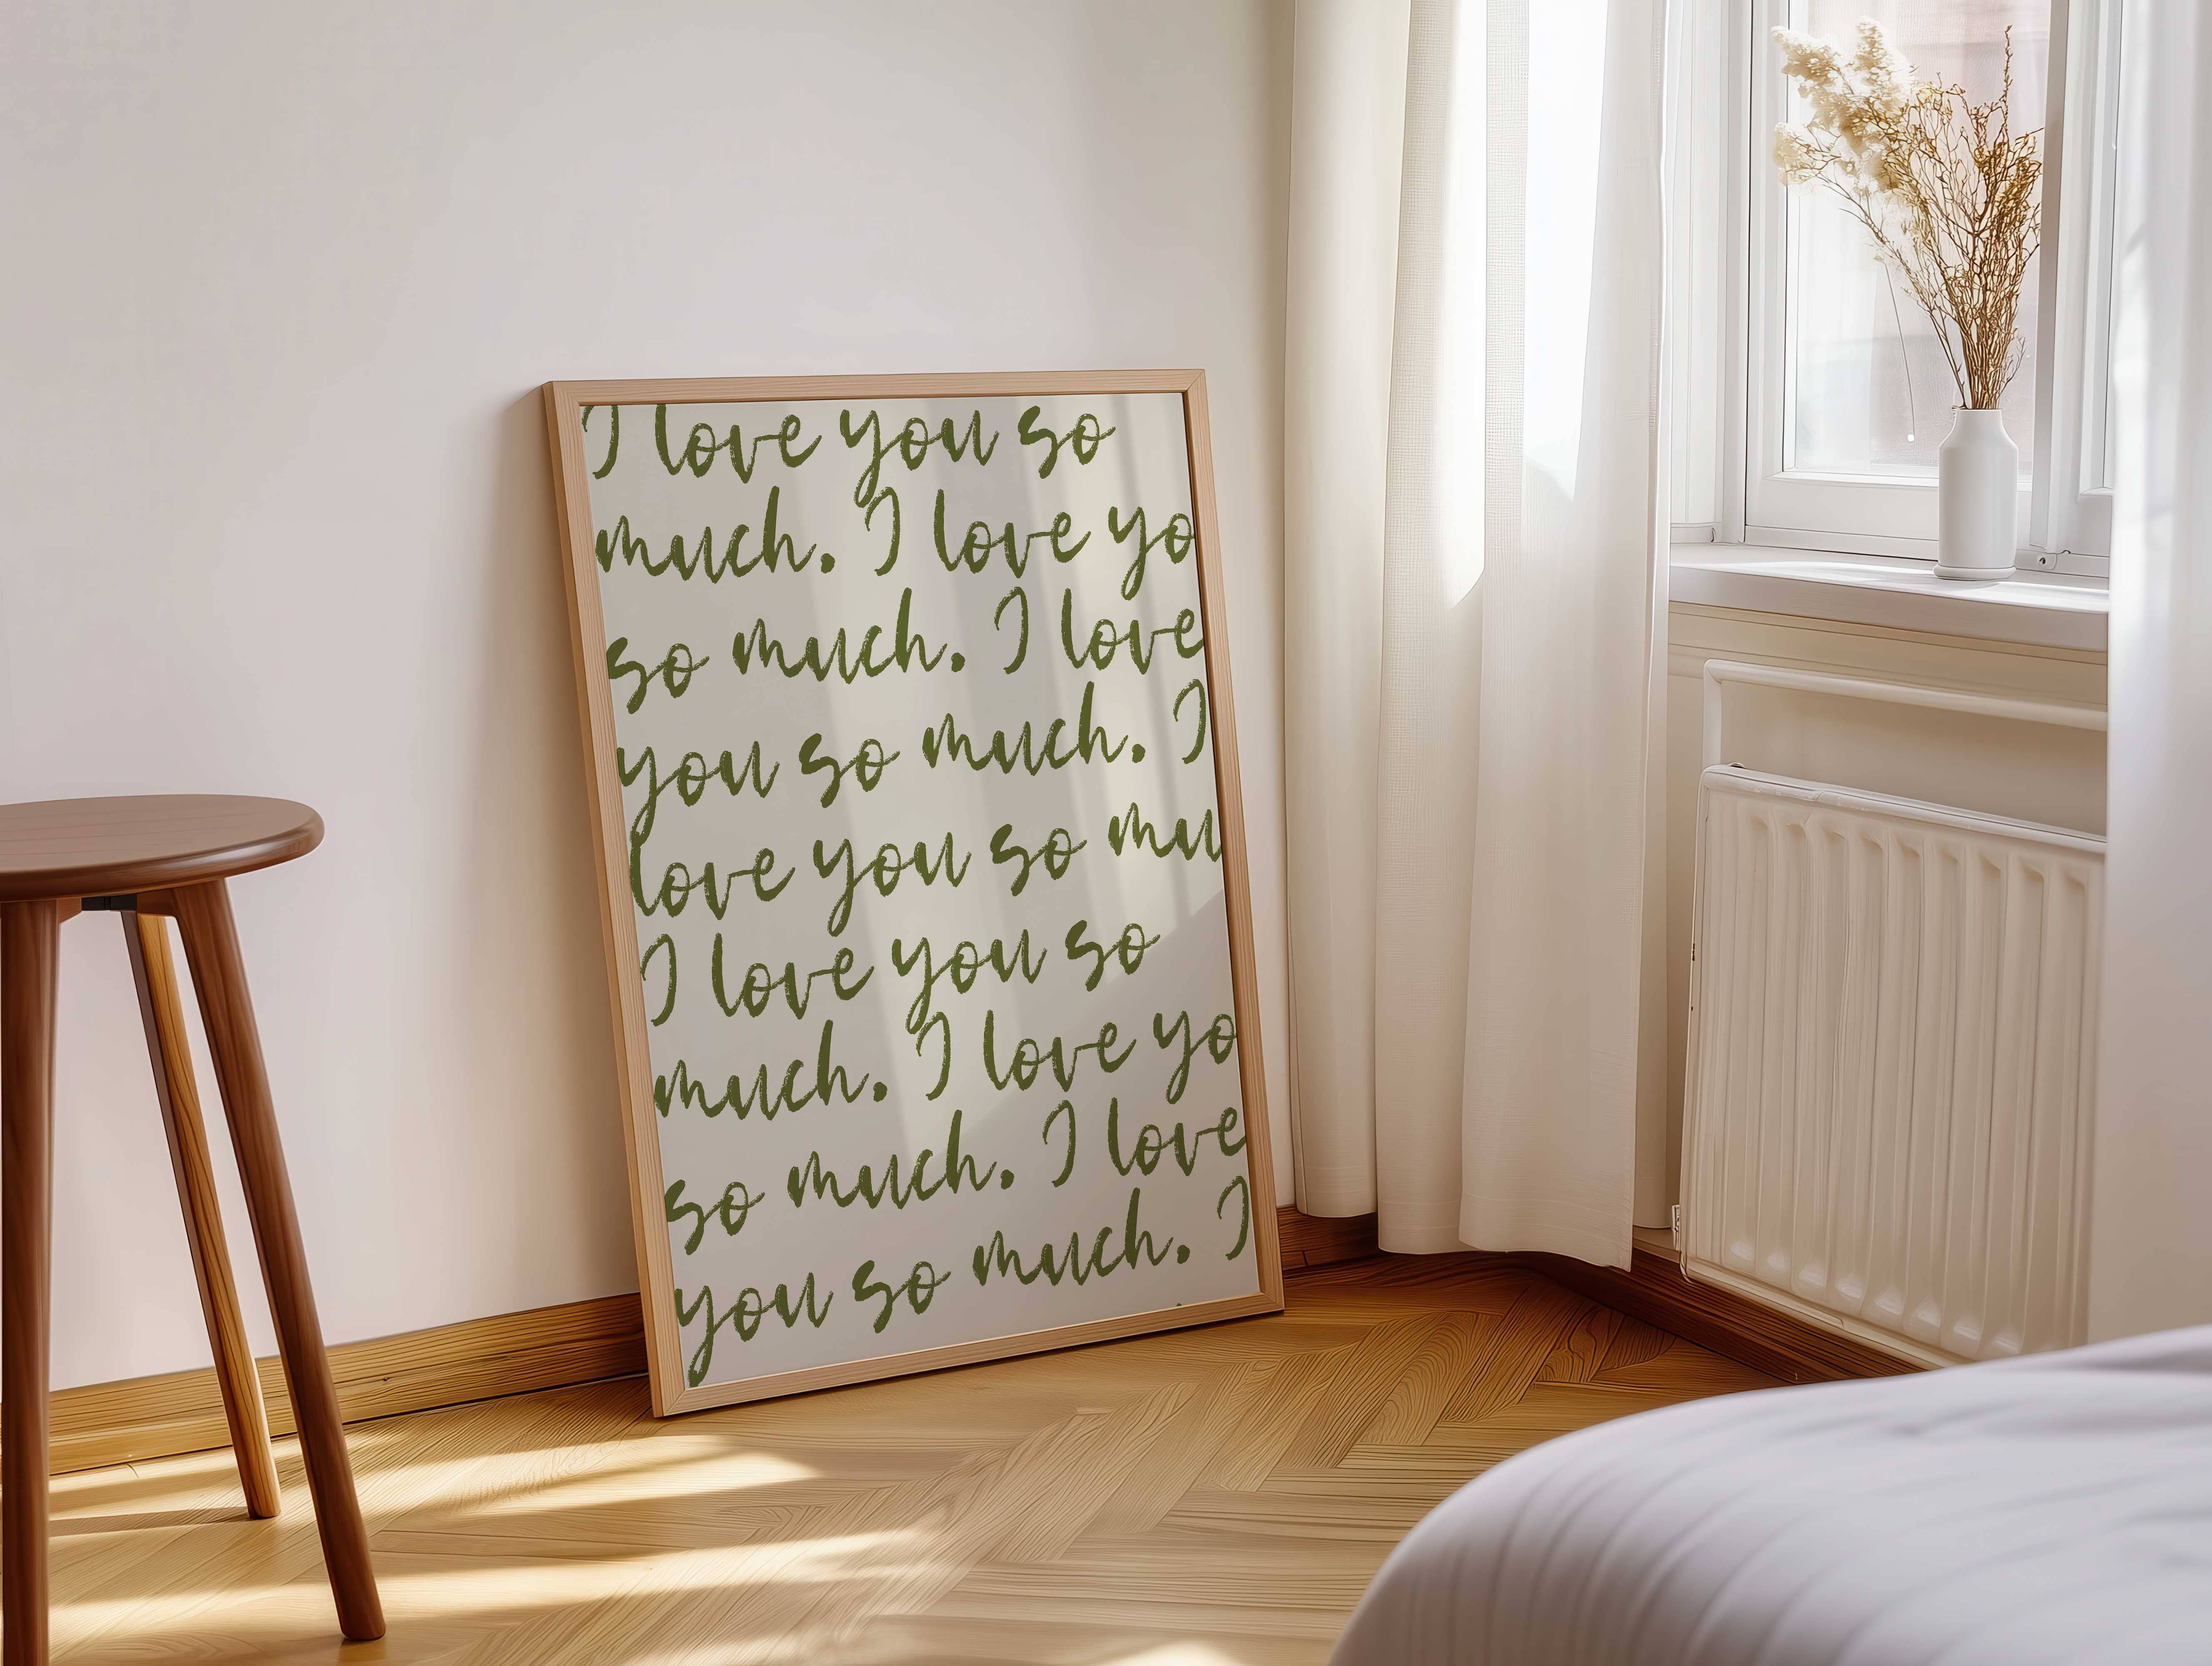 I love you so
much. I love yo
so much. I love
you so much. I
love you so mu
I love you so
much. I love yo
so much. I love
you so much. I